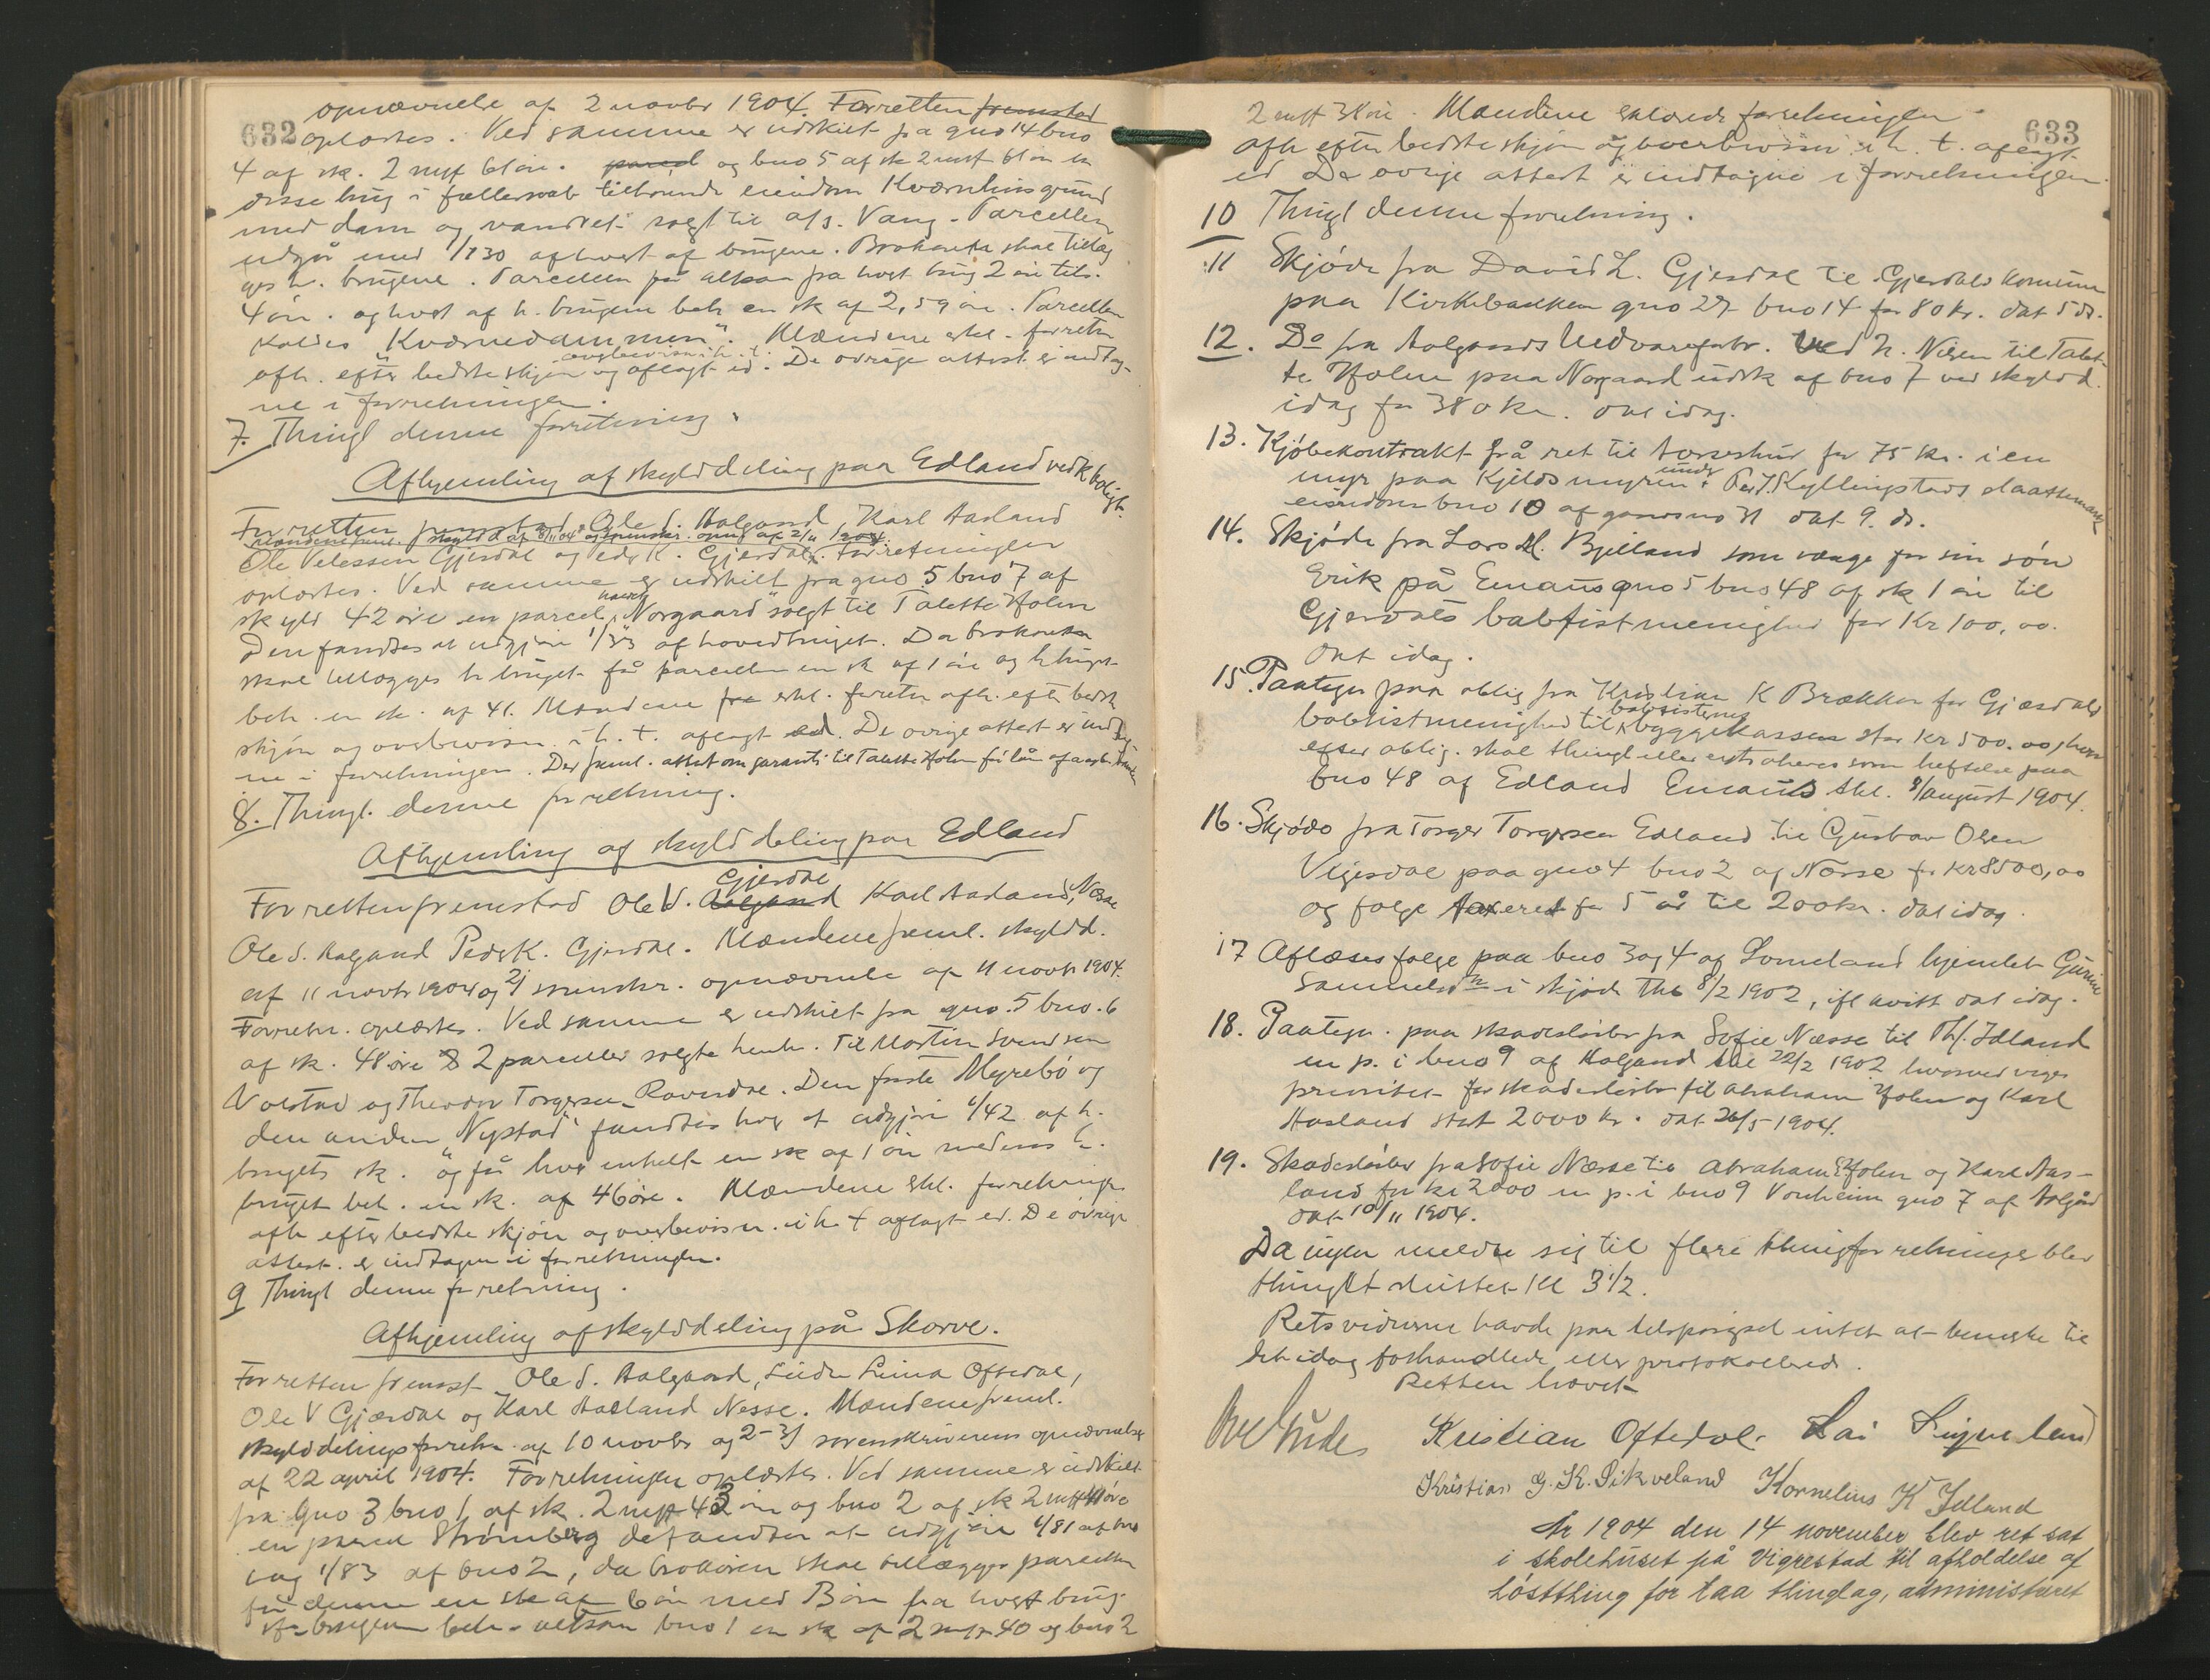 632
opnævnelse af 2 novbr 1904. Forretten fremstod
oplæstes. Ved samme er udskilt fra gno 14 bno
4 af sk. 2 mrk 61 øre. parcel og bno 5 af sk 2 mrk 61 øre en
disse brug i fællesskab tilhørende eiendom Kværnhusgrund
med dam og vandret solgt til a/s. Vang. Parcellen
udgjør med 1/130 af hvert af brugene. Brøkøren skal tillæg
ges h. brugene. Parcellen får altsaa fra hvert brug 2 øre tils.
4 øre. og hvert af h. brugene beh en sk af 2,59 øre. Parcellen
kaldes Kværnedammen". Mændene erkl. forretn
afh. efter bedste skjøn og overbevisn i h. t. aflagt ed. De øvrige attest. er indtag-
ne i forretningen.
7. Thingl denne forretning.
Afhjemling af skylddeling paa Edland vedk boligt.
For retten fremstod Ole S. Aalgaard, Karl Aasland
Mændene freml. skyldd af 8/11 04 og sorenskr. opn af 2/11 1904.
Ole Velessen Gjesdal og Peder K. Gjesdal. Forretningen
oplæstes. Ved samme er udskilt fra gno 5 bno 7 af
skyld 42 øre en parcel, navn "Norgaard" solgt til Talette Holen
Den fandtes at udgjøre 1/33 af hovedbruget. Da brøkøren
skal tillægges h. bruget får parcellen en sk af 1 øre og h. bruget
beh. en sk. af 41. Mændene erkl. forretn afh. efter bedste
skjøn og overbevisn. i h. t. aflagt ed. De øvrige attest er indtag
ne i forretningen. Der freml. attest om garanti til Talette Holen få lån af arb.
8. Thingl. denne forretning.
Afhjemling af skylddeling paa Edland
For retten fremstod Ole V. Aalgaard Gjesdal Karl Aasland, Næsse
Ole S. Aalgaard Peder K. Gjesdal. Mændene freml. skyldd.
af 11 novbr 1904 og 2) sorenskr. opnævnelse af 11 novbr 1904.
Forretn. oplæstes. Ved samme er udskilt fra gno. 5 bno. 6
af sk. 48 øre 2 parceller solgte henh. til Martin Svendsen
Nolstad og Theodor Torgersen Ravndal. Den første Myrebø og
den anden "Nystad" fandtes hver at udgjøre 1/42 af h.
brugets sk. og får hver enkelt en sk af 1 øre medens h.
bruget beh. en sk. af 46 øre. Mændene erkl. forretningen
afh efter bedste skjøn og overbevisn. i h. t aflagt ed. De øvrige
attest. er indtagne i forretningen.
9 Thingl denne forretning.
Afhjemling af skylddeling på Skorve.
For retten fremst Ole S. Aalgaard, Lima Oftedal,
Ole V Gjesdal og Karl Aasland Nesse. Mændene freml.
skylddelingsforretn. af 10 novbr og 2- sorenskriverens opnævnelse
af 22 april 1904. Forretningen oplæstes. Ved samme er udskilt
fra gno 3 bno 1 af sk. 2 mrk 43 øre og bno 2 af sk 2 mrk 41 øre
en parcel Strømberg det fandtes at udgjøre 1/81 af bno
1 og 1/83 af bno 2, da brøkøren skal tillægges parcellen
får denne en sk af 6 øre med 3 øre fra hvert brug.
H. brugene beh. altsaa bno 1 en sk af 2 mrk 40 og bno 2
633
2 mrk 38 øre. Mændene erklærede forretningen
afh efter bedste skjøn og overbevisn. i h. t. aflagt
ed De øvrige attest er indtagne i forretningen.
10 Thingl denne forretning.
11 Skjøde fra David L. Gjesdal til Gjesdals komune
paa Kirkebakken gno 27 bno 14 for 80 kr. dat 5 ds.
12. Do fra Aalgaards Uldvarefabr. ved N. Nilsen til Talet-
te Holen paa Norgaard udsk af bno 7 ved skyldd.
idag for 380 kr. dat idag.
13. Kjøbekontrakt på ret til torveskur for 75 kr. i en
myr paa Kjeldsmyren under Peder T. Kyllingstads slaattemark
eiendom bno 10 af gaardsno 31 dat 9. ds.
14. Skjøde fra Lars M. Bjelland som værge for sin søn
Erik på Emaus gno 5 bno 48 af sk 1 øre til
Gjesdals babtistmenighed for Kr 100,00.
dat idag.
15. Paategn paa oblig fra Kristian K Brækken for Gjæsdals
babtistmenighed til babtisternes byggekassen stor kr 500.00, hvor
efter oblig. skal thingl eller extraheres som heftelse paa
bno 48 af Edland Emaus thl. 8/august 1904.
16. Skjøde fra Torger Torgersen Edland til Gustav Olsen
Veiesdal paa gno 4 bno 2 og Næsse for kr 8500,00
og følge taxeret for 5 år til 200 kr. dat idag.
17 Aflæses følge paa bno 3 og 4 af Lomeland hjemlet Gurine
Samuelsdtr i skjøde thl 8/2 1902, ifl kvitt dat idag.
18. Paategn. paa skadesløsbr fra Sofie Næsse til Th. Idland
en p. i bno 9 af Aalgaard thl 22/2 1902 hvorved viger
prioritet for skadesløsbr til Abraham Holen og Karl
Aasland stort 2000 kr. dat 26/5 1904.
19. Skadesløsbr fra Sofie Næsse til Abraham Holen og Karl Aas-
land for kr 2000 en p. i bno 9 Vonheim gno 7 af Aalgård
dat 10/11 1904.
Da ingen meldte sig til flere thingforretninger blev
thinget sluttet kl 3 1/2.
Retsvidnerne havde paa tilspørgsel intet at bemerke til
det idag forhandlede eller protokollerede.
Retten hævet
Kristian Oftedal. Lars Lygneland
Kristian G. K. Sikveland Kornelius K Idland
År 1904 den 14 november blev ret sat
i skolehuset på Vigrestad til afholdelse af
høstthing for Haa thinglag, administreret